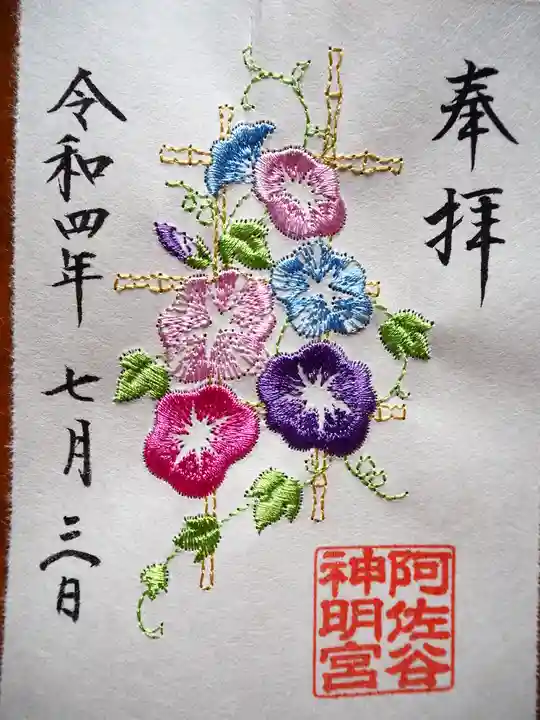 奉拝
阿佐谷
神明宮
令和四年 七月 三日